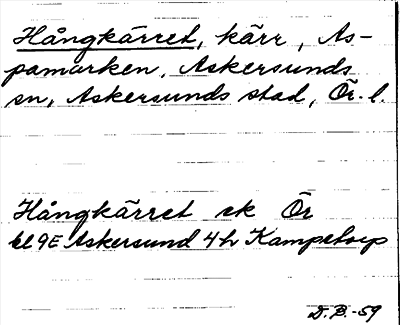 Hångkärret, kärr, As-
pamarken, Askersunds
sn, Askersunds stad, Ör. l.
Hångkärret ek Ör
bl 9E Askersund 4h Kampetorp
D. B. -59